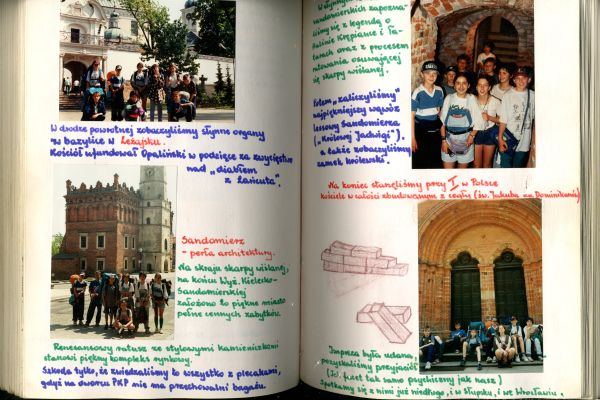 W drodze powrotnej zobaczyliśmy słynne organy
w bazylice w Leżajsku.
Kościół ufundował Opaliński w podzięce za zwycięstwo
nad „diabłem
z Łańcuta".
Sandomierz
- perła architektury.
Na skraju skarpy wiślanej,
na końcu Wyż. Kielecko-
Sandomierskiej
założono to piękne miasto
pełne cennych zabytków.
Renesansowy ratusz ze stylowymi kamieniczkami
stanowi piękny kompleks rynkowy.
Szkoda tylko, że zwiedzaliśmy to wszystko z plecakami,
gdyż na dworcu PKP nie ma przechowalni bagażu.
sandomierskich zapozna-
liśmy się z legendą o
Halinie Krępiance i Ta-
tarach oraz z procesem
ratowania osuwającej
się skarpy wiślanej.
Potem „zaliczyliśmy"
najpiękniejszy wąwóz
lessowy Sandomierza
(„Królowej Jadwigi"),
a także zobaczyliśmy
zamek królewski.
Na koniec stanęliśmy przy I w Polsce
kościele w całości zbudowanym z cegły (św. Jakuba za Dominikanów)
Impreza była udana,
pozyskaliśmy przyjaciół
(Ic. fizet tak samo psychiczny jak nasz)
Spotkamy się z nimi już niedługo, i w Słupsku, i we Wrocławiu.